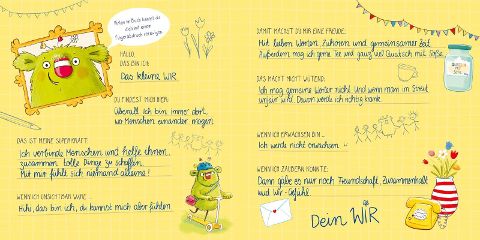 HALLO,
DAS BIN ICH:
Das kleine WIR
DU FINDEST MICH HIER:
Überall! Ich bin immer dort,
wo Menschen einander mögen
DAS IST MEINE SUPERKRAFT:
Ich verbinde Menschen und helfe ihnen,
zusammen tolle Dinge zu schaffen.
Mit mir fühlt sich niemand alleine!
WENN ICH UNSICHTBAR WÄRE:
Hihi, das bin ich, du kannst mich aber fühlen.
DAMIT MACHST DU MIR EINE FREUDE:
Mit lieben Worten, Zuhören und gemeinsamer Zeit.
Außerdem mag ich gerne Tee und ganz viel Quatsch mit Soße.
DAS MACHT MICH WÜTEND:
Ich mag gemeine Wörter nicht. Und wenn man im Streit
unfair wird. Davon werde ich richtig krank.
WENN ICH ERWACHSEN BIN...
Ich werde nicht erwachsen.
WENN ICH ZAUBERN KÖNNTE:
Dann gäbe es nur noch Freundschaft, Zusammenhalt
und Wir-Gefühl.
Dein WIR